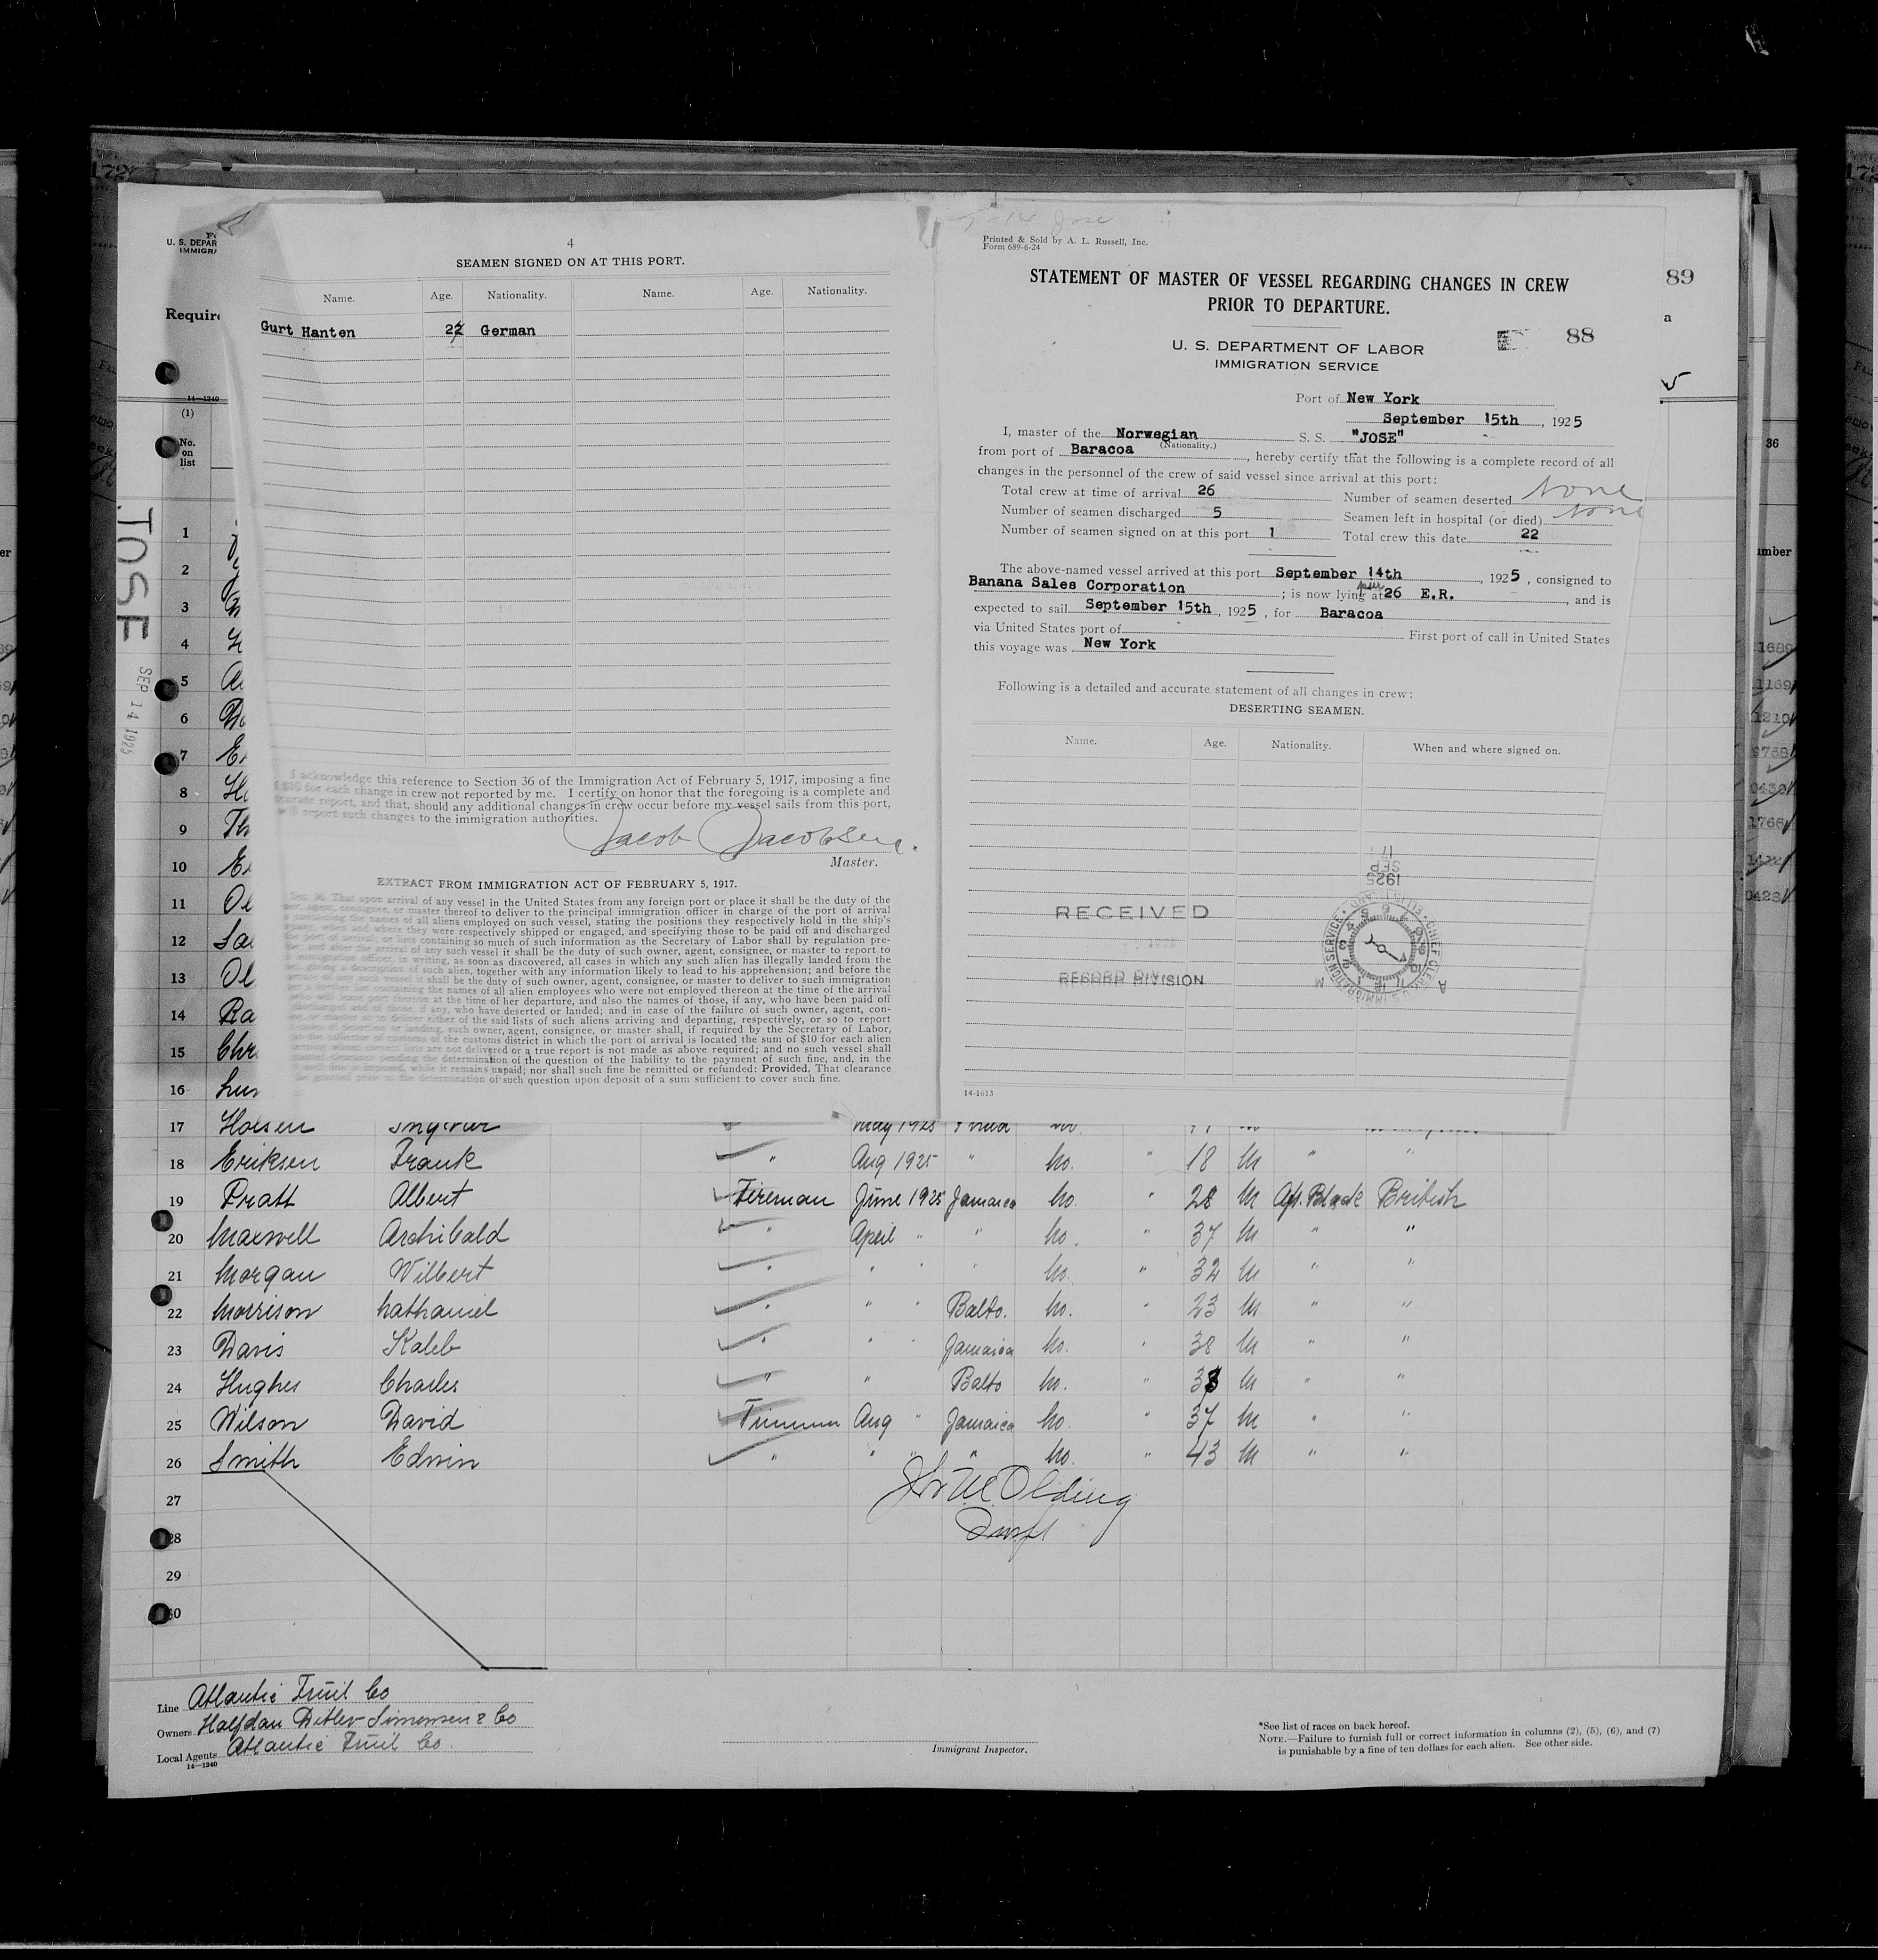 4
SEAMEN SIGNED ON AT THIS PORT.
Name. Age. Nationality. Name. Age. Nationality.
Gurt Hanten 22 German
I acknowledge this reference to Section 36 of the Immigration Act of February 5, 1917, imposing a fine
$10 for each change in crew not reported by me. I certify on honor that the foregoing is a complete and
accurate report, and that, should any additional changes in crew occur before my vessel sails from this port,
will report such changes to the immigration authorities.
Jacob Jacobsen.
Master.
EXTRACT FROM IMMIGRATION ACT OF FEBRUARY 5, 1917.
Sec. 36. That upon arrival of any vessel in the United States from any foreign port or place it shall be the duty of the
agent, consignee, or master thereof to deliver to the principal immigration officer in charge of the port of arrival
containing the names of all aliens employed on such vessel, stating the positions they respectively hold in the ship's
when and where they were respectively shipped or engaged, and specifying those to be paid off and discharged
port of arrival; or lists containing so much of such information as the Secretary of Labor shall by regulation pre-
and after the arrival of any such vessel it shall be the duty of such owner, agent, consignee, or master to report to
immigration officer, in writing, as soon as discovered, all cases in which any such alien has illegally landed from the
giving a description of such alien, together with any information likely to lead to his apprehension; and before the
of any such vessel it shall be the duty of such owner, agent, consignee, or master to deliver to such immigration
list containing the names of all alien employees who were not employed thereon at the time of the arrival
will leave port thereon at the time of her departure, and also the names of those, if any, who have been paid off
and of those, if any, who have deserted or landed; and in case of the failure of such owner, agent, con-
or master so to deliver either of the said lists of such aliens arriving and departing, respectively, or so to report
cases of desertion or landing, such owner, agent, consignee, or master shall, if required by the Secretary of Labor,
to the collector of customs of the customs district in which the port of arrival is located the sum of $10 for each alien
correct lists are not delivered or a true report is not made as above required; and no such vessel shall
clearance pending the determination of the question of the liability to the payment of such fine, and, in the
such fine is imposed, while it remains unpaid; nor shall such fine be remitted or refunded: Provided, That clearance
be granted prior to the determination of such question upon deposit of a sum sufficient to cover such fine.
Printed & Sold by A. L. Russell, Inc.
Form 689-6-24
STATEMENT OF MASTER OF VESSEL REGARDING CHANGES IN CREW
PRIOR TO DEPARTURE.
89
88
U. S. DEPARTMENT OF LABOR
IMMIGRATION SERVICE
Port of New York
September 15th, 1925
I, master of the Norwegian S. S. "JOSE"
(Nationality.)
from port of Baracoa, hereby certify that the following is a complete record of all
changes in the personnel of the crew of said vessel since arrival at this port:
Total crew at time of arrival 26 Number of seamen deserted None
Number of seamen discharged 5 Seamen left in hospital (or died) None
Number of seamen signed on at this port 1 Total crew this date 22
The above-named vessel arrived at this port September 14th, 1925, consigned to
Banana Sales Corporation; is now lying at pier 26 E.R., and is
expected to sail September 15th, 1925, for Baracoa
via United States port of First port of call in United States
this voyage was New York
Following is a detailed and accurate statement of all changes in crew:
DESERTING SEAMEN.
Name. Age. Nationality. When and where signed on.
RECEIVED
RECORD DIVISION
17
SEP
1925
CHIEF CLERK U.S. IMMIGRATION SERVICE • ELLIS ISLAND
14-1613
U. S. DEPAR
IMMIGRA
Require
14—1240
(1)
No.
on
list
JOSE
SEP 14 1925
1
2
3
4
5
6
7
8
9
10
11
12
13
14
15
16
17 May 1925
18 Eriksen Frank " Aug 1925 " No. " 18 M " "
19 Pratt Albert Fireman June 1925 Jamaica No. " 28 M Af. Black British
20 Maxwell Archibald " April " " No. " 37 M " "
21 Morgan Wilbert " " " " No. " 32 M " "
22 Morrison Nathaniel " " " Balto. No. " 23 M " "
23 Davis Kaleb " " " Jamaica No. " 38 M " "
24 Hughes Charles " " Balto No. " 33 M " "
25 Wilson David Trimmer Aug " Jamaica No. " 37 M " "
26 Smith Edwin " " " " No. " 43 M " "
27
28
29
30
Line Atlantic Fruit Co
Owners Halfdan Ditlev-Simonsen & Co
Local Agents Atlantic Fruit Co.
14—1240
Immigrant Inspector.
*See list of races on back hereof.
NOTE.—Failure to furnish full or correct information in columns (2), (5), (6), and (7)
is punishable by a fine of ten dollars for each alien. See other side.
36